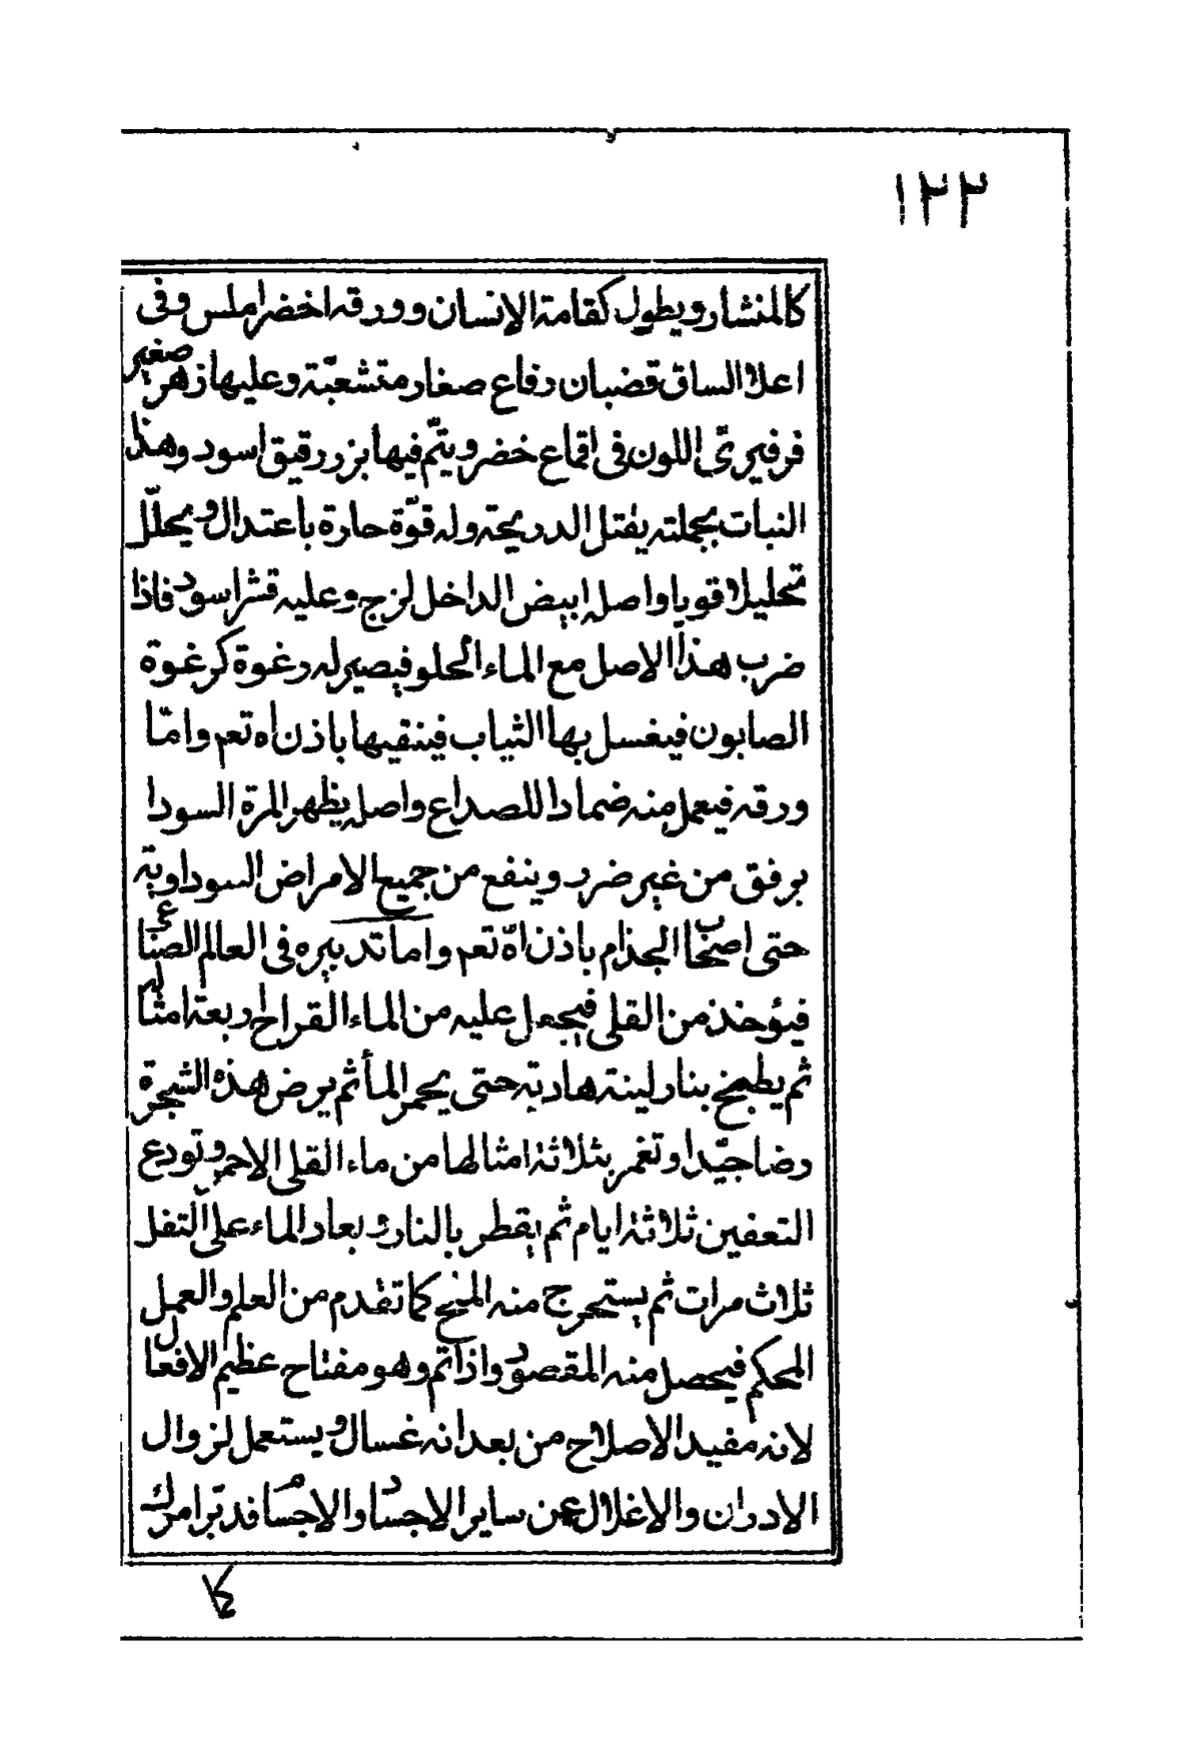 ١٢٢
كالمنشار ويطول كقامة الانسان وورقه اخضر املس وفى
اعلا الساق قضبان رقاع صغار متشعبّة وعليها زهر صغير
فرفيرىّ اللون فى اقماع خضر ويتمّ فيها بزر رقيق اسود وهذا
النبات بجملته يقتل الدريحة وله قوّة حارة باعتدال ويحلّل
تحليلا قويا واصله ابيض الداخل لزج وعليه قشر اسود فاذا
ضرب هذا الاصل مع الماء الحلو فيصير له رغوة كرغوة
الصابون فيغسل بها الثياب فينقيها باذن اه تعم وامّا
ورقه فيعمل منه ضمادا للصداع واصله يظهر المرة السودا
برفق من غير ضرر وينفع من جميع الامراض السوداوية
حتى اصحاب الجذام باذن اه تعم واما تدبيره فى العالم الصناعى
فيؤخذ من القلى فيجعل عليه من الماء القراح اربعة امثاله
ثم يطبخ بنار لينة هادية حتى يحمر المأ ثم يرض هذه الشجرة
رضا جيّدا وتغمر بثلاثة امثالها من ماء القلى الاحمر وتودع
التعفين ثلاثة ايام ثم يقطر بالنار ويعاد الماء على التفل
ثلاث مرات ثم يستخرج منه الملح كما تقدم من العلم والعمل
المحكم فيحصل منه المقصود واذا تم وهو مفتاح عظيم الافعال
لانه مفيد الاصلاح من بعد انه غسال ويستعمل لزوال
الادران والاغلال عن ساير الاجساد والاجسام فدبّر امرك
كا